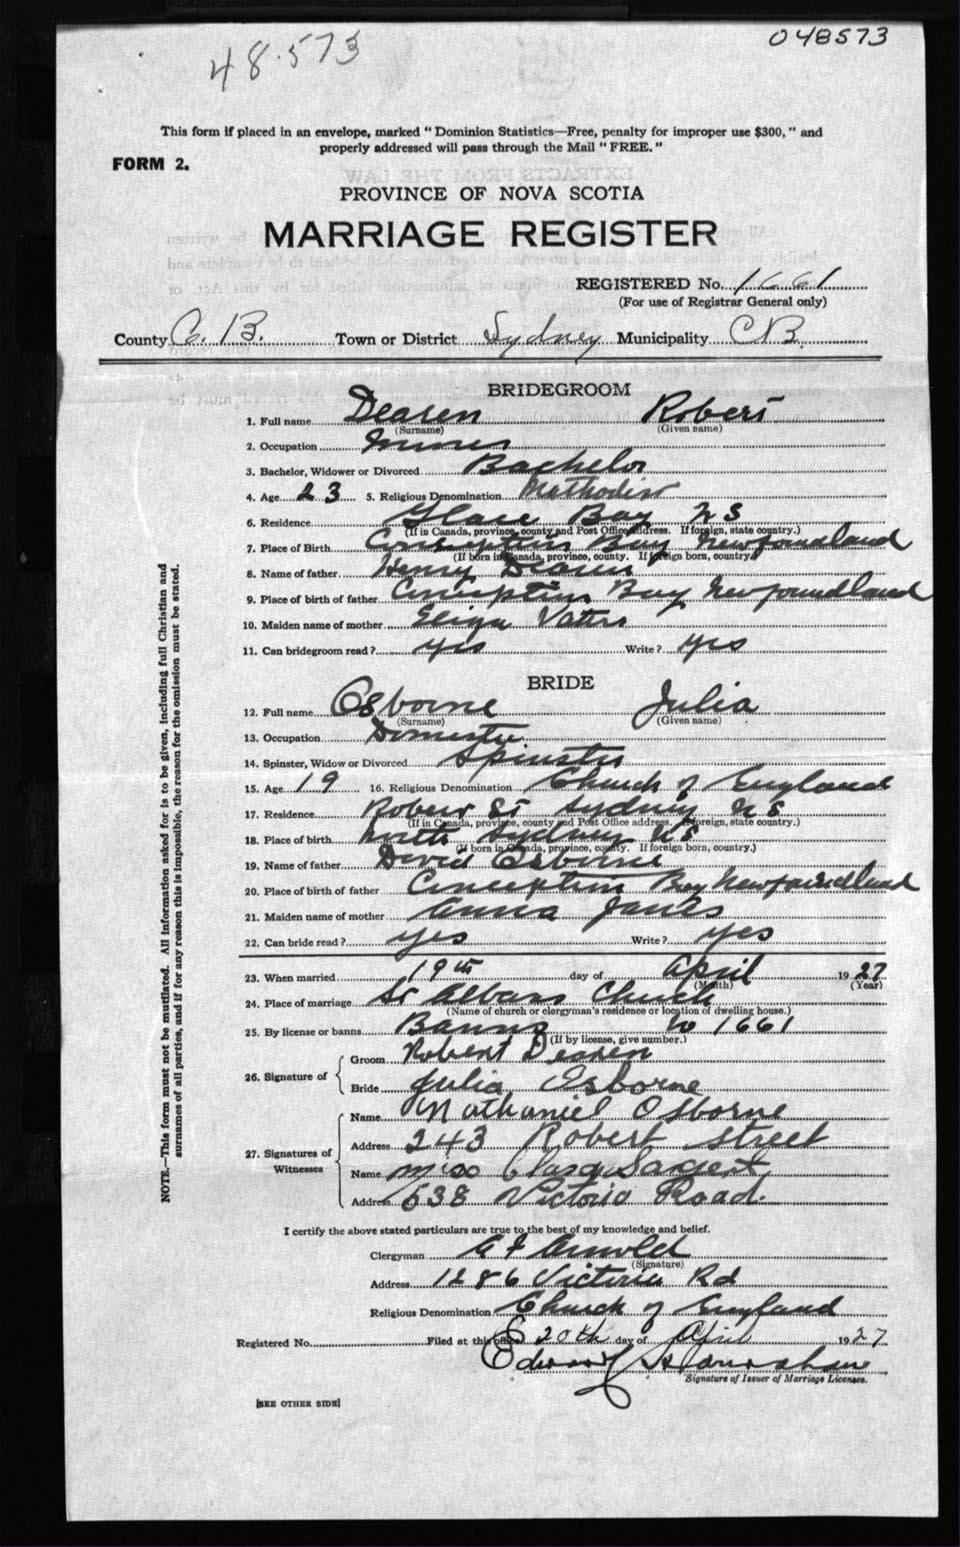 48.573
048573
This form if placed in an envelope, marked "Dominion Statistics—Free, penalty for improper use $300," and
properly addressed will pass through the Mail "FREE."
FORM 2.
PROVINCE OF NOVA SCOTIA
MARRIAGE REGISTER
REGISTERED No. 1661
(For use of Registrar General only)
County C. B. Town or District Sydney Municipality C B.
BRIDEGROOM
1. Full name Dearen Robert
(Surname) (Given name)
2. Occupation
3. Bachelor, Widower or Divorced Bachelor
4. Age 23 5. Religious Denomination Methodist
6. Residence Glace Bay N S
(If in Canada, province, county and Post Office address. If foreign, state country.)
7. Place of Birth Conception Bay Newfoundland
(If born in Canada, province, county. If foreign born, country.)
8. Name of father Henry Dearen
9. Place of birth of father Conception Bay Newfoundland
10. Maiden name of mother Eliza Vaters
11. Can bridegroom read? yes Write? yes
BRIDE
12. Full name Osborne Julia
(Surname) (Given name)
13. Occupation Domestic
14. Spinster, Widow or Divorced Spinster
15. Age 19 16. Religious Denomination Church of England
17. Residence Robert St Sydney N S
(If in Canada, province, county and Post Office address. If foreign, state country.)
18. Place of birth North Sydney N S
(If born in Canada, province, county. If foreign born, country.)
19. Name of father David Osborne
20. Place of birth of father Conception Bay Newfoundland
21. Maiden name of mother Anna Janes
22. Can bride read? yes Write? yes
23. When married 19th day of April 1927
(Month) (Year)
24. Place of marriage St Albans Church
(Name of church or clergyman's residence or location of dwelling house.)
25. By license or banns Banns No 1661
(If by license, give number.)
26. Signature of
Groom Robert Dearen
Bride Julia Osborne
27. Signatures of Witnesses
Name Nathaniel Osborne
Address 243 Robert Street
Name Miss Sargent
Address 638 Victoria Road.
I certify the above stated particulars are true to the best of my knowledge and belief.
Clergyman Arnold
(Signature)
Address 1286 Victoria Rd
Religious Denomination Church of England
Registered No. Filed at this office 20th day of April 1927
Edward
Signature of Issuer of Marriage Licenses.
[SEE OTHER SIDE]
NOTE.—This form must not be mutilated. All information asked for is to be given, including full Christian and
surnames of all parties, and if for any reason this is impossible, the reason for the omission must be stated.